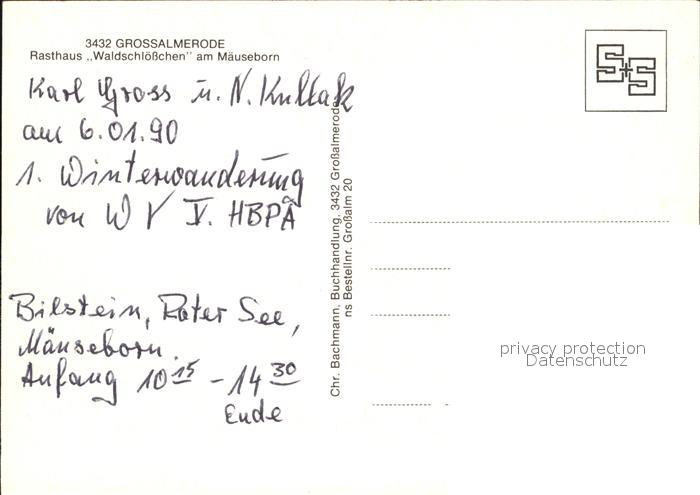 3432 GROSSALMERODE
Rasthaus „Waldschlößchen" am Mäuseborn
Karl Gross u. N. Kullak
am 6.01.90
1. Winterwanderung
von W V V. HBPÄ
Bilstein, Roter See,
Mäuseborn.
Anfang 10 15 - 14 30
Ende
Chr. Bachmann, Buchhandlung, 3432 Großalmerode
ns Bestellnr. Großalm 20
S+S
privacy protection
Datenschutz